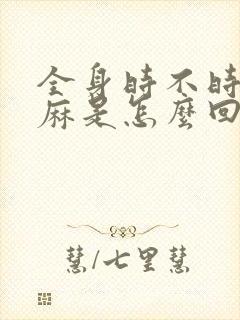 全身時不時
麻是怎麼回
慧/七里慧